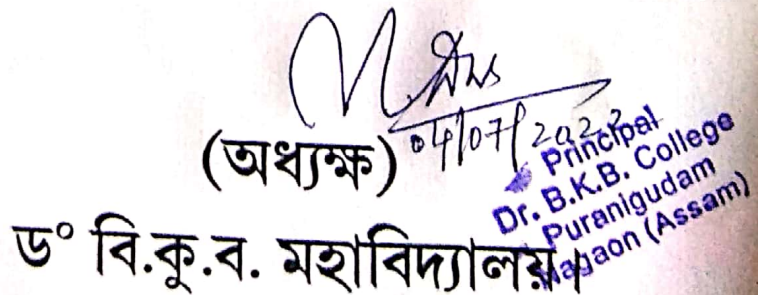 04/07/2022
(অধ্যক্ষ)
ড° বি.কু.ব. মহাবিদ্যালয়।
Principal
Dr. B.K.B. College
Puranigudam
Nagaon (Assam)